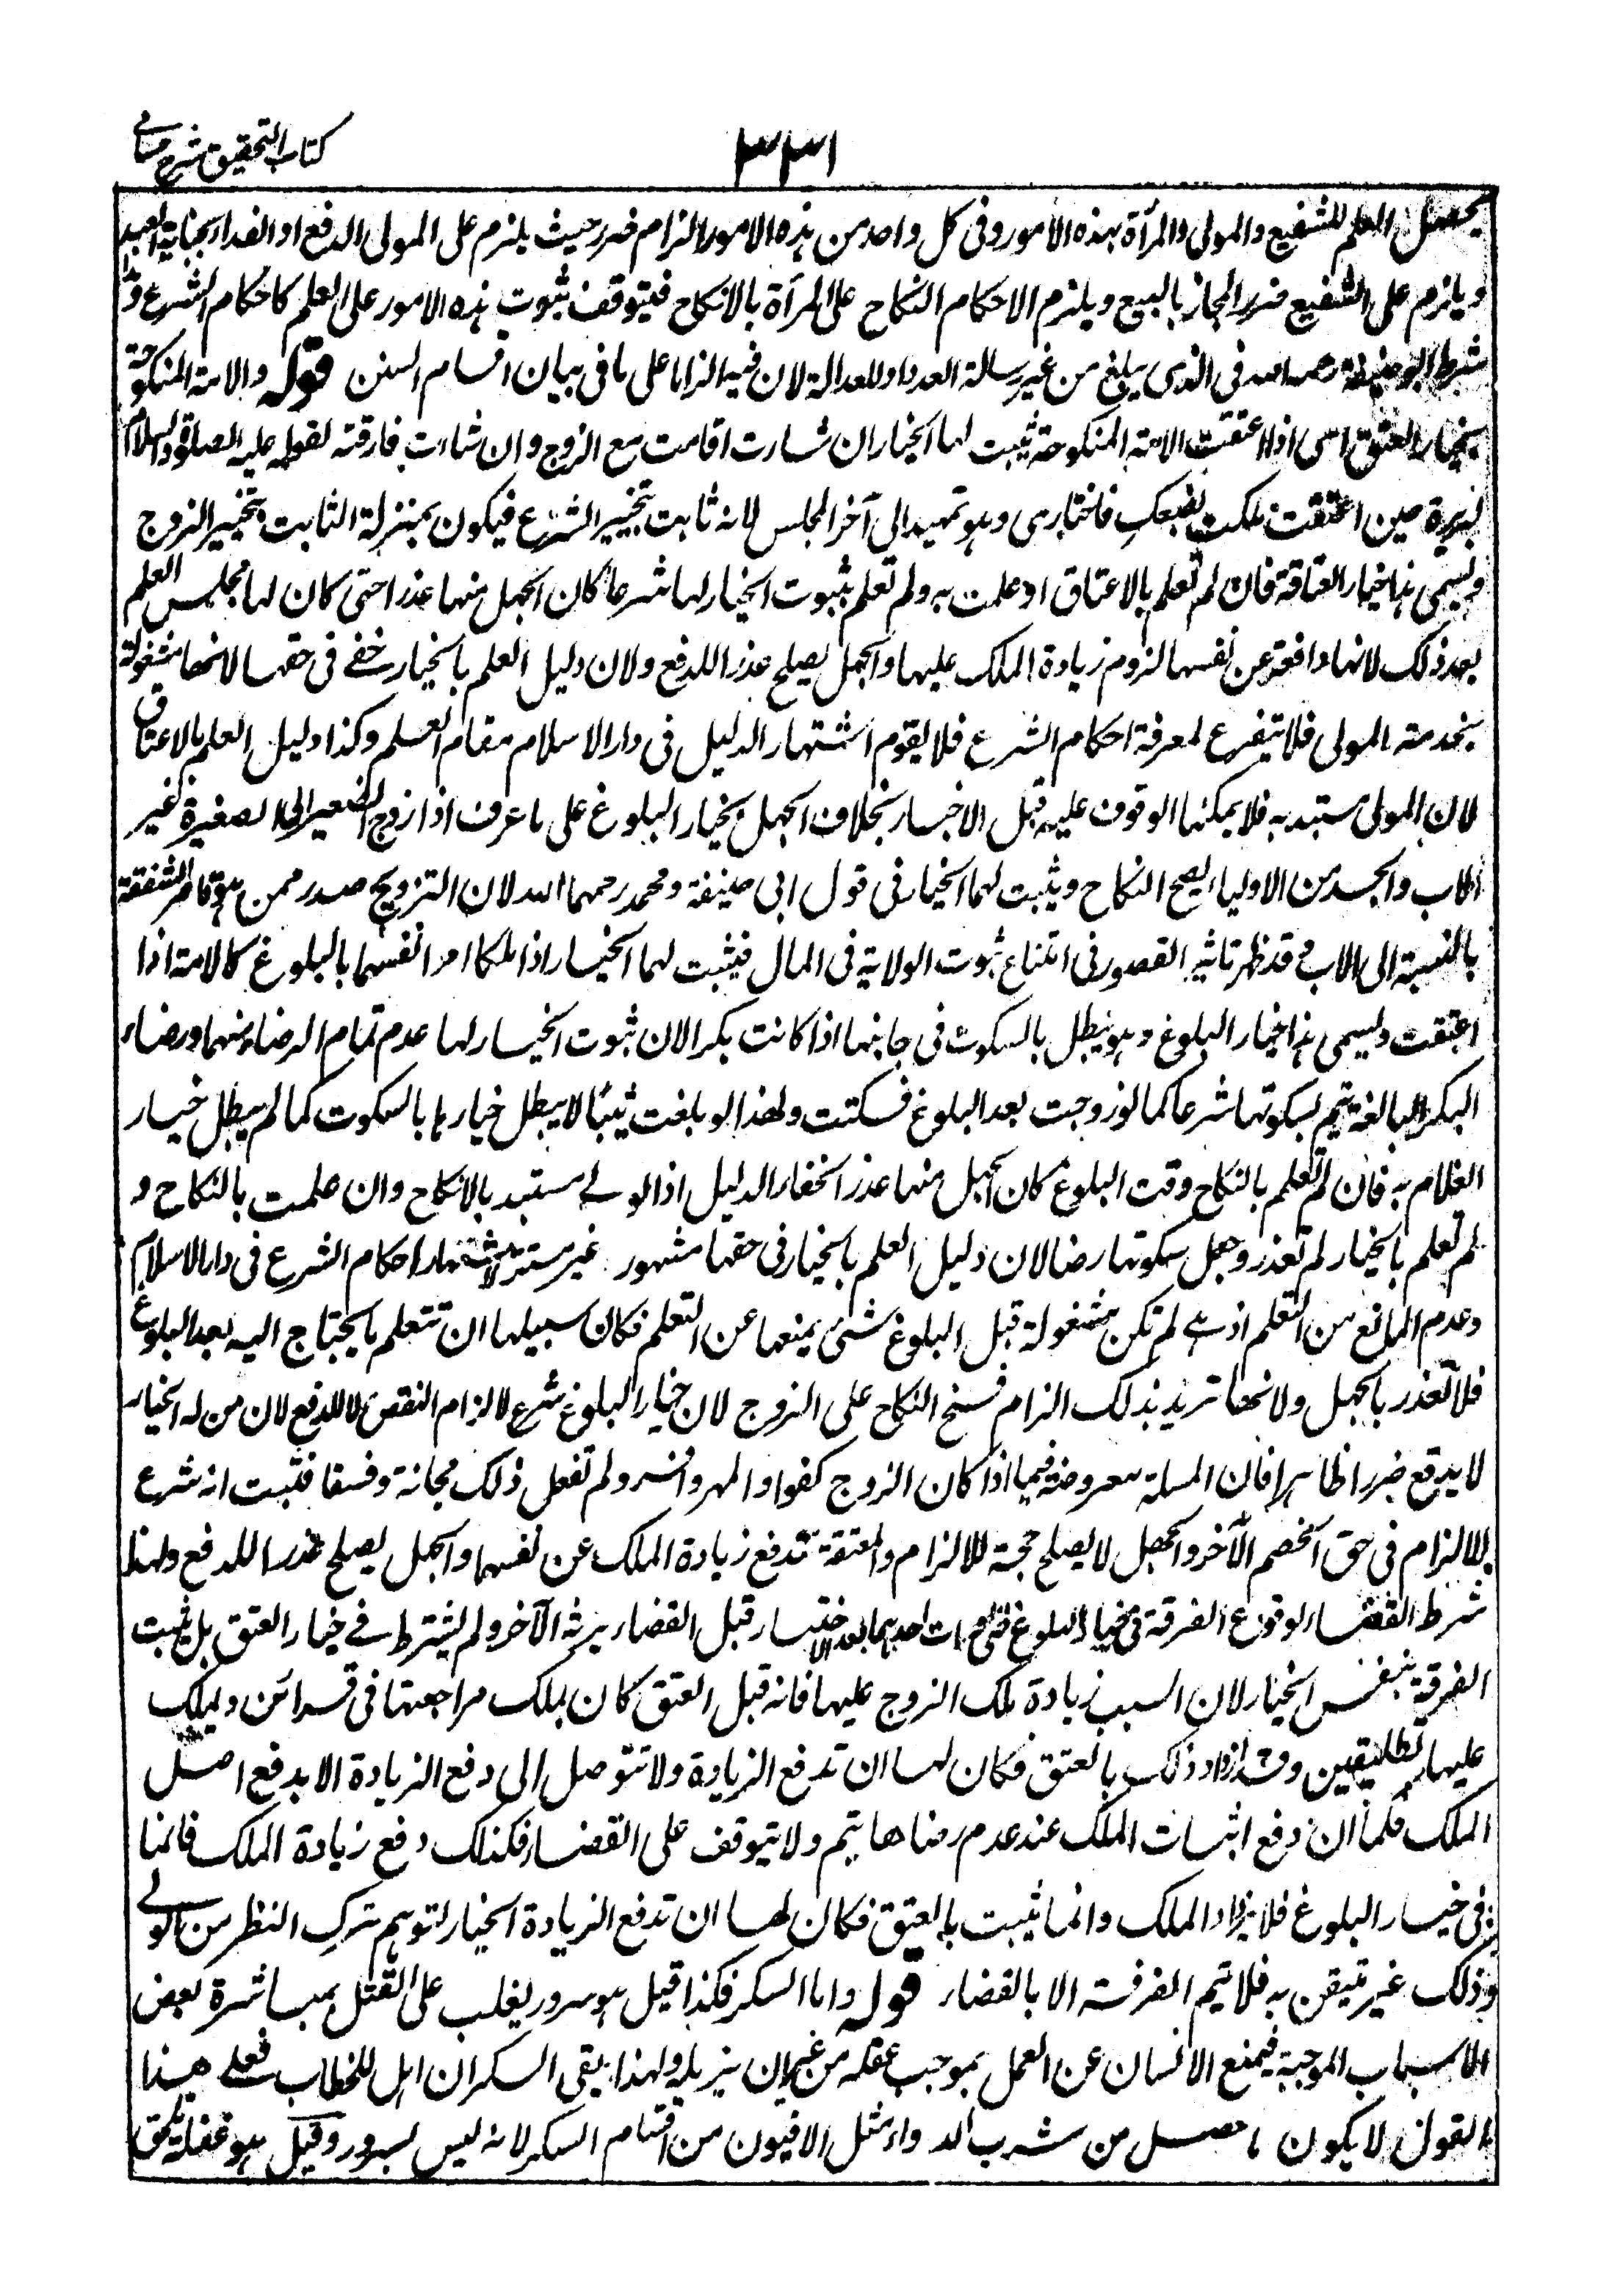 كتاب التحقيق شرح حسامي
٣٣١
يحصل العلم للشفيع والمولى والمرأة بهذه الامور وفى كل واحد من هذه الامور الزام ضرر حيث يلزم على المولى الدفع او الفداء بجناية العبد
ويلزم على الشفيع ضرر الجار بالبيع ويلزم الاحكام النكاح على المرأة بالانكاح فيتوقف ثبوت هذه الامور على العلم كاحكام الشرع ولذا
شرط ابو حنيفة رحمه الله فى الذى يبلغ من غير رسالة العدد او العدالة لان فيه الزاما على ما فى بيان اقسام السنن قوله والامة المنكوحة
بخيار العتق اى اذا اعتقت الامة المنكوحة ثبت لها الخيار ان شاءت اقامت مع الزوج وان شاءت فارقته لقوله عليه الصلوة والسلام
لبريرة حين اعتقت ملكت بضعك فاختارى وهو تمهيد الى آخر المجلس لانه ثابت بتخيير الشرع فيكون بمنزلة الثابت بتخيير الزوج
ويسمى هذا خيار العتاقة فان لم تعلم بالاعتاق او علمت به ولم تعلم بثبوت الخيار لها شرعا كان الجهل منها عذرا حتى كان لها مجلس العلم
بعد ذلك لانها دافعة عن نفسها لزوم زيادة الملك عليها والجهل يصلح عذرا للدفع ولان دليل العلم بالخيار خفي فى حقها لانها مشغولة
بخدمة المولى فلا تتفرغ لمعرفة احكام الشرع فلا يقوم اشتهار الدليل فى دار الاسلام مقام العلم وكذا دليل العلم بالاعتاق
لان المولى مستبد به فلا يمكنها الوقوف عليه قبل الاخبار بخلاف الجهل بخيار البلوغ على ما عرف اذا زوج الصغير او الصغيرة غير
الاب والجد من الاولياء يصح النكاح ويثبت لهما الخيار فى قول ابى حنيفة ومحمد رحمهما الله لان التزويج صدر ممن هو قاصر الشفقة
بالنسبة الى الاب وقد ظهر تاثير القصور فى امتناع ثبوت الولاية فى المال فيثبت لهما الخيار اذا ملكا امر انفسهما بالبلوغ كالامة اذا
اعتقت ويسمى هذا خيار البلوغ وهو يبطل بالسكوت فى جانبها اذا كانت بكرا لان ثبوت الخيار لها عدم تمام الرضاء منهما ورضاء
البكر البالغة يتم بسكوتها شرعا كما لو زوجت بعد البلوغ فسكتت ولهذا لو بلغت ثيبا لا يبطل خيارها بالسكوت كما لم يبطل خيار
الغلام به فان لم تعلم بالنكاح وقت البلوغ كان الجهل منها عذرا لخفاء الدليل اذ الولي مستبد بالانكاح وان علمت بالنكاح و
لم تعلم بالخيار لم تعذر وجعل سكوتها رضا لان دليل العلم بالخيار فى حقها مشهور غير مستتر لاشتهار احكام الشرع فى دار الاسلام
وعدم المانع من التعلم اذ هي لم تكن مشغولة قبل البلوغ بشئ يمنعها عن التعلم فكان سبيلها ان تتعلم ما يحتاج اليه بعد البلوغ
فلا تعذر بالجهل ولانها تريد بذلك الزام فسخ النكاح على الزوج لان خيار البلوغ شرع لالزام النقض لا للدفع لان من له الخيار
لا يدفع ضررا ظاهرا فان المسئلة معروضة فيما اذا كان الزوج كفوا والمهر وافرا ولم تفعل ذلك مجانة وفسقا فثبت انه شرع
للالزام فى حق الخصم الآخر والجهل لا يصلح حجة للالزام والمعتقة تدفع زيادة الملك عن نفسها والجهل يصلح عذرا للدفع ولهذا
شرط القضاء لوقوع الفرقة فى خيار البلوغ حتى لو مات احدهما بعد الاختيار قبل القضاء يرثه الآخر ولم يشترط في خيار العتق بل يثبت
الفرقة بنفس الخيار لان السبب زيادة ملك الزوج عليها فانه قبل العتق كان يملك مراجعتها فى قرائن ويملك
عليها تطليقتين وقد ازداد ذلك بالعتق فكان لها ان تدفع الزيادة ولا تتوصل الى دفع الزيادة الا بدفع اصل
الملك فكما ان دفع اثبات الملك عند عدم رضاها يتم ولا يتوقف على القضاء فكذلك دفع زيادة الملك فاما
فى خيار البلوغ فلا يزداد الملك وانما يثبت بالعتق فكان لها ان تدفع الزيادة الخيار لتوهم ترك النظر من الولي
وذلك غير متيقن به فلا يتم الفرقة الا بالقضاء قوله واما السكر فكذا قيل هو سرور يغلب على العقل بمباشرة بعض
الاسباب الموجبة فيمنع الانسان عن العمل بموجب عقله من غير ان يزيله ولهذا بقى السكران اهل للخطاب فعلى هذا
القول لا يكون ما حصل من شرب الدواء مثل الافيون من اقسام السكر لانه ليس بسرور وقيل هو غفلة تلحق